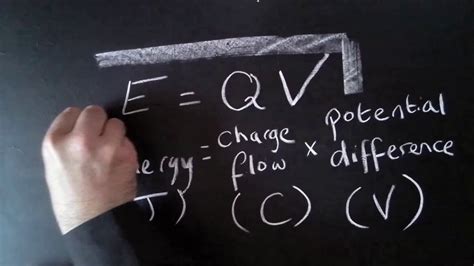 E = QV
= charge flow × potential difference
(C) (V)